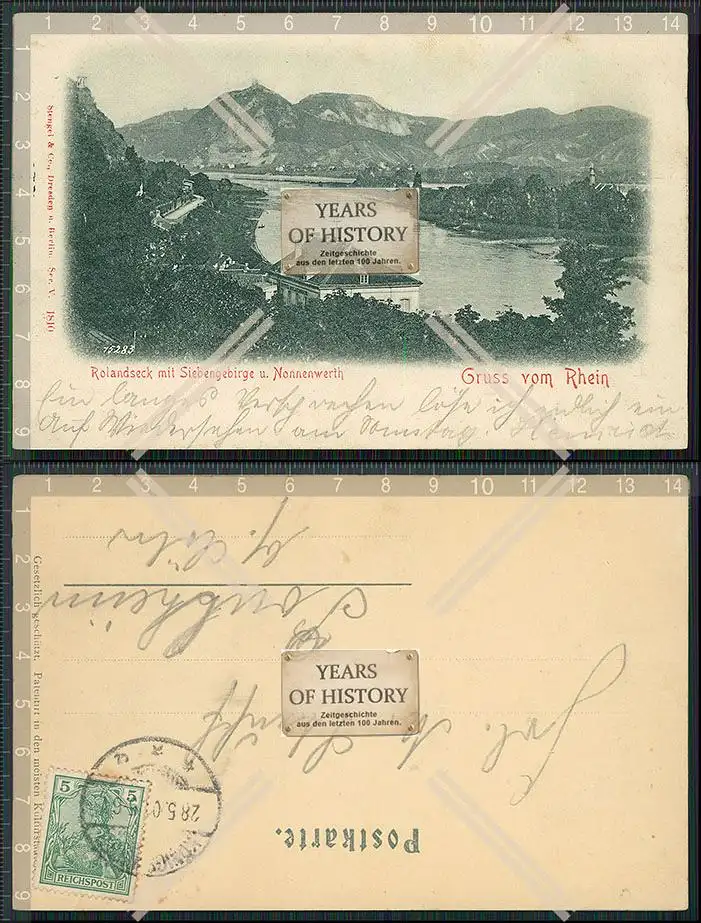 1 2 3 4 5 6 7 8 9 10 11 12 13 14
2
3
4
5
6
7
8
9
Stengel & Co., Dresden u. Berlin. Ser. V. 1810
YEARS
OF HISTORY
Zeitgeschichte
aus den letzten 100 Jahren.
15283
Rolandseck mit Siebengebirge u. Nonnenwerth
Gruss vom Rhein
Ein langes Versprechen löse ich endlich ein
Auf Wiedersehen am Sonntag. Heinrich
1 2 3 4 5 6 7 8 9 10 11 12 13 14
2
3
4
5
6
7
8
9
Postkarte.
Frl.
YEARS
OF HISTORY
Zeitgeschichte
aus den letzten 100 Jahren.
Gesetzlich geschützt. Patentirt in den meisten
28.5.0
5 5
REICHSPOST